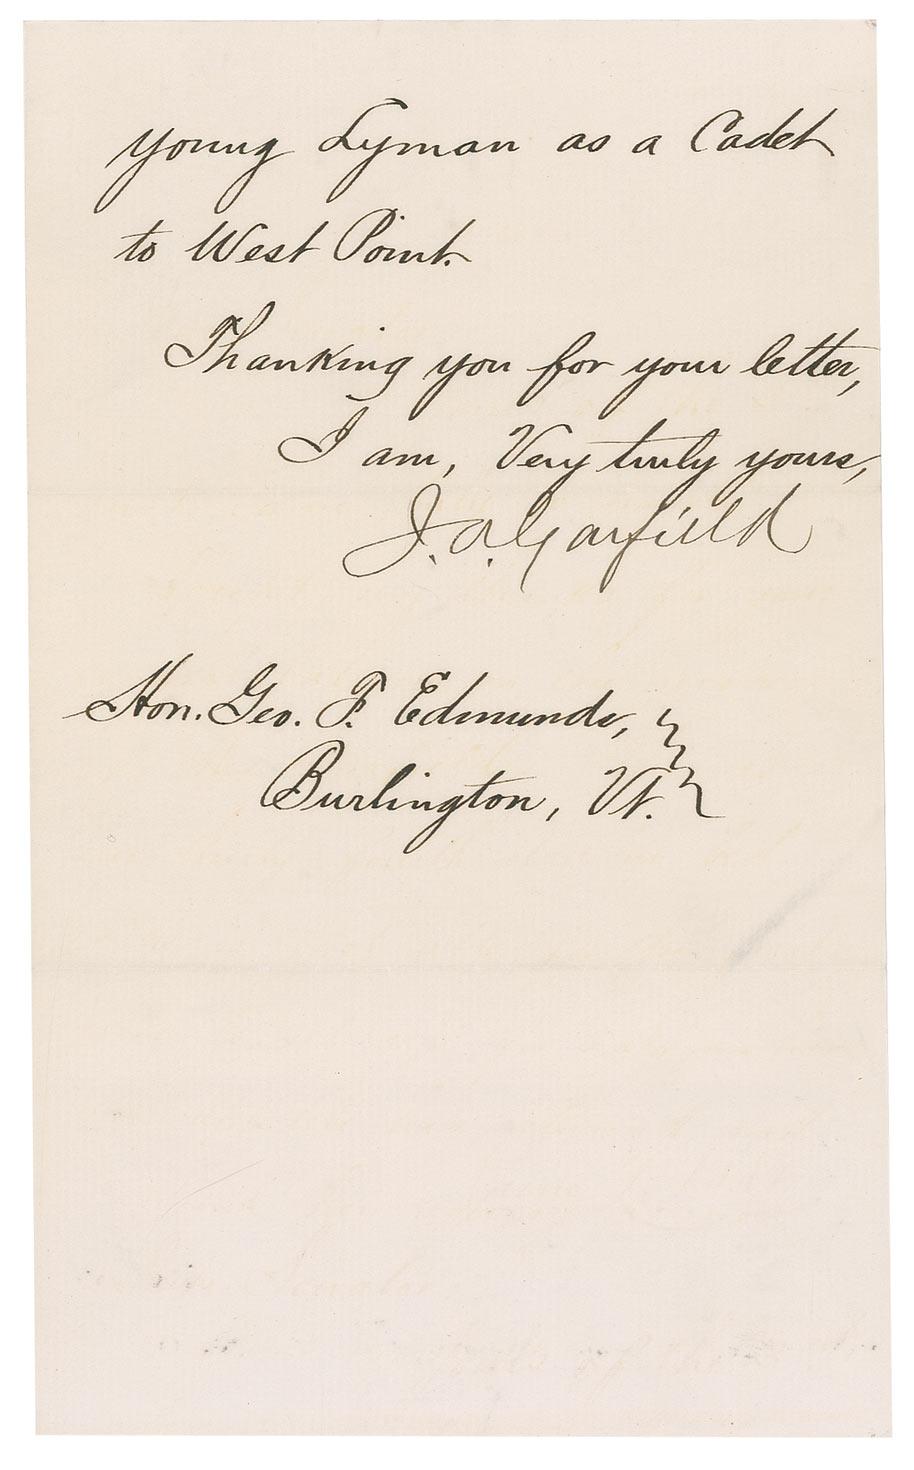 young Lyman as a Cadet
to West Point.
Thanking you for your letter,
I am, Very truly yours,
J. A. Garfield
Hon. Geo. F. Edmunds,
Burlington, Vt.